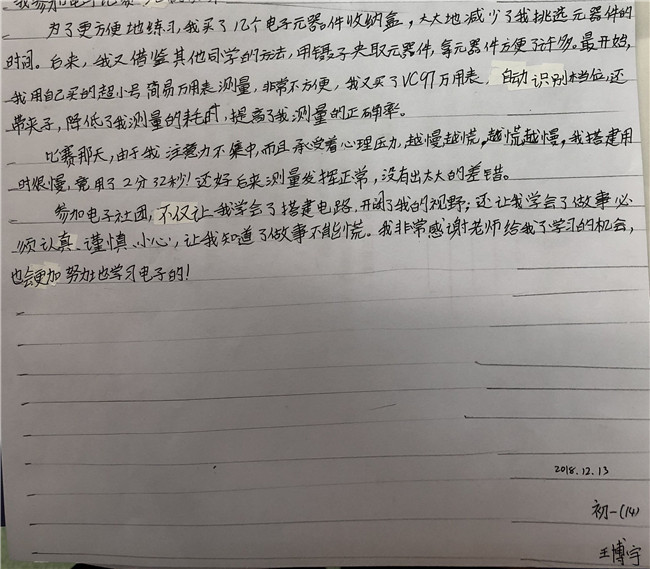 我参加电
为了更方便地练习,我买了12个电子元器件收纳盒,大大地减少了我挑选元器件的
时间。后来,我又借鉴其他同学的方法,用镊子夹取元器件,拿元器件方便了许多。最开始,
我用自己买的超小号简易万用表测量,非常不方便,我又买了VC97万用表,自动识别档位,还
带夹子,降低了我测量的耗时,提高了我测量的正确率。
比赛那天,由于我注意力不集中,而且承受着心理压力,越慢越慌,越慌越慢,我搭建用
时很慢,竟用了2分32秒!还好后来测量发挥正常,没有出太大的差错。
参加电子社团,不仅让我学会了搭建电路,开阔了我的视野;还让我学会了做事必
须认真、谨慎、小心,让我知道了做事不能慌。我非常感谢老师给我了学习的机会,
也会更加努力地学习电子的!
2018.12.13
初一(14)
王博宇